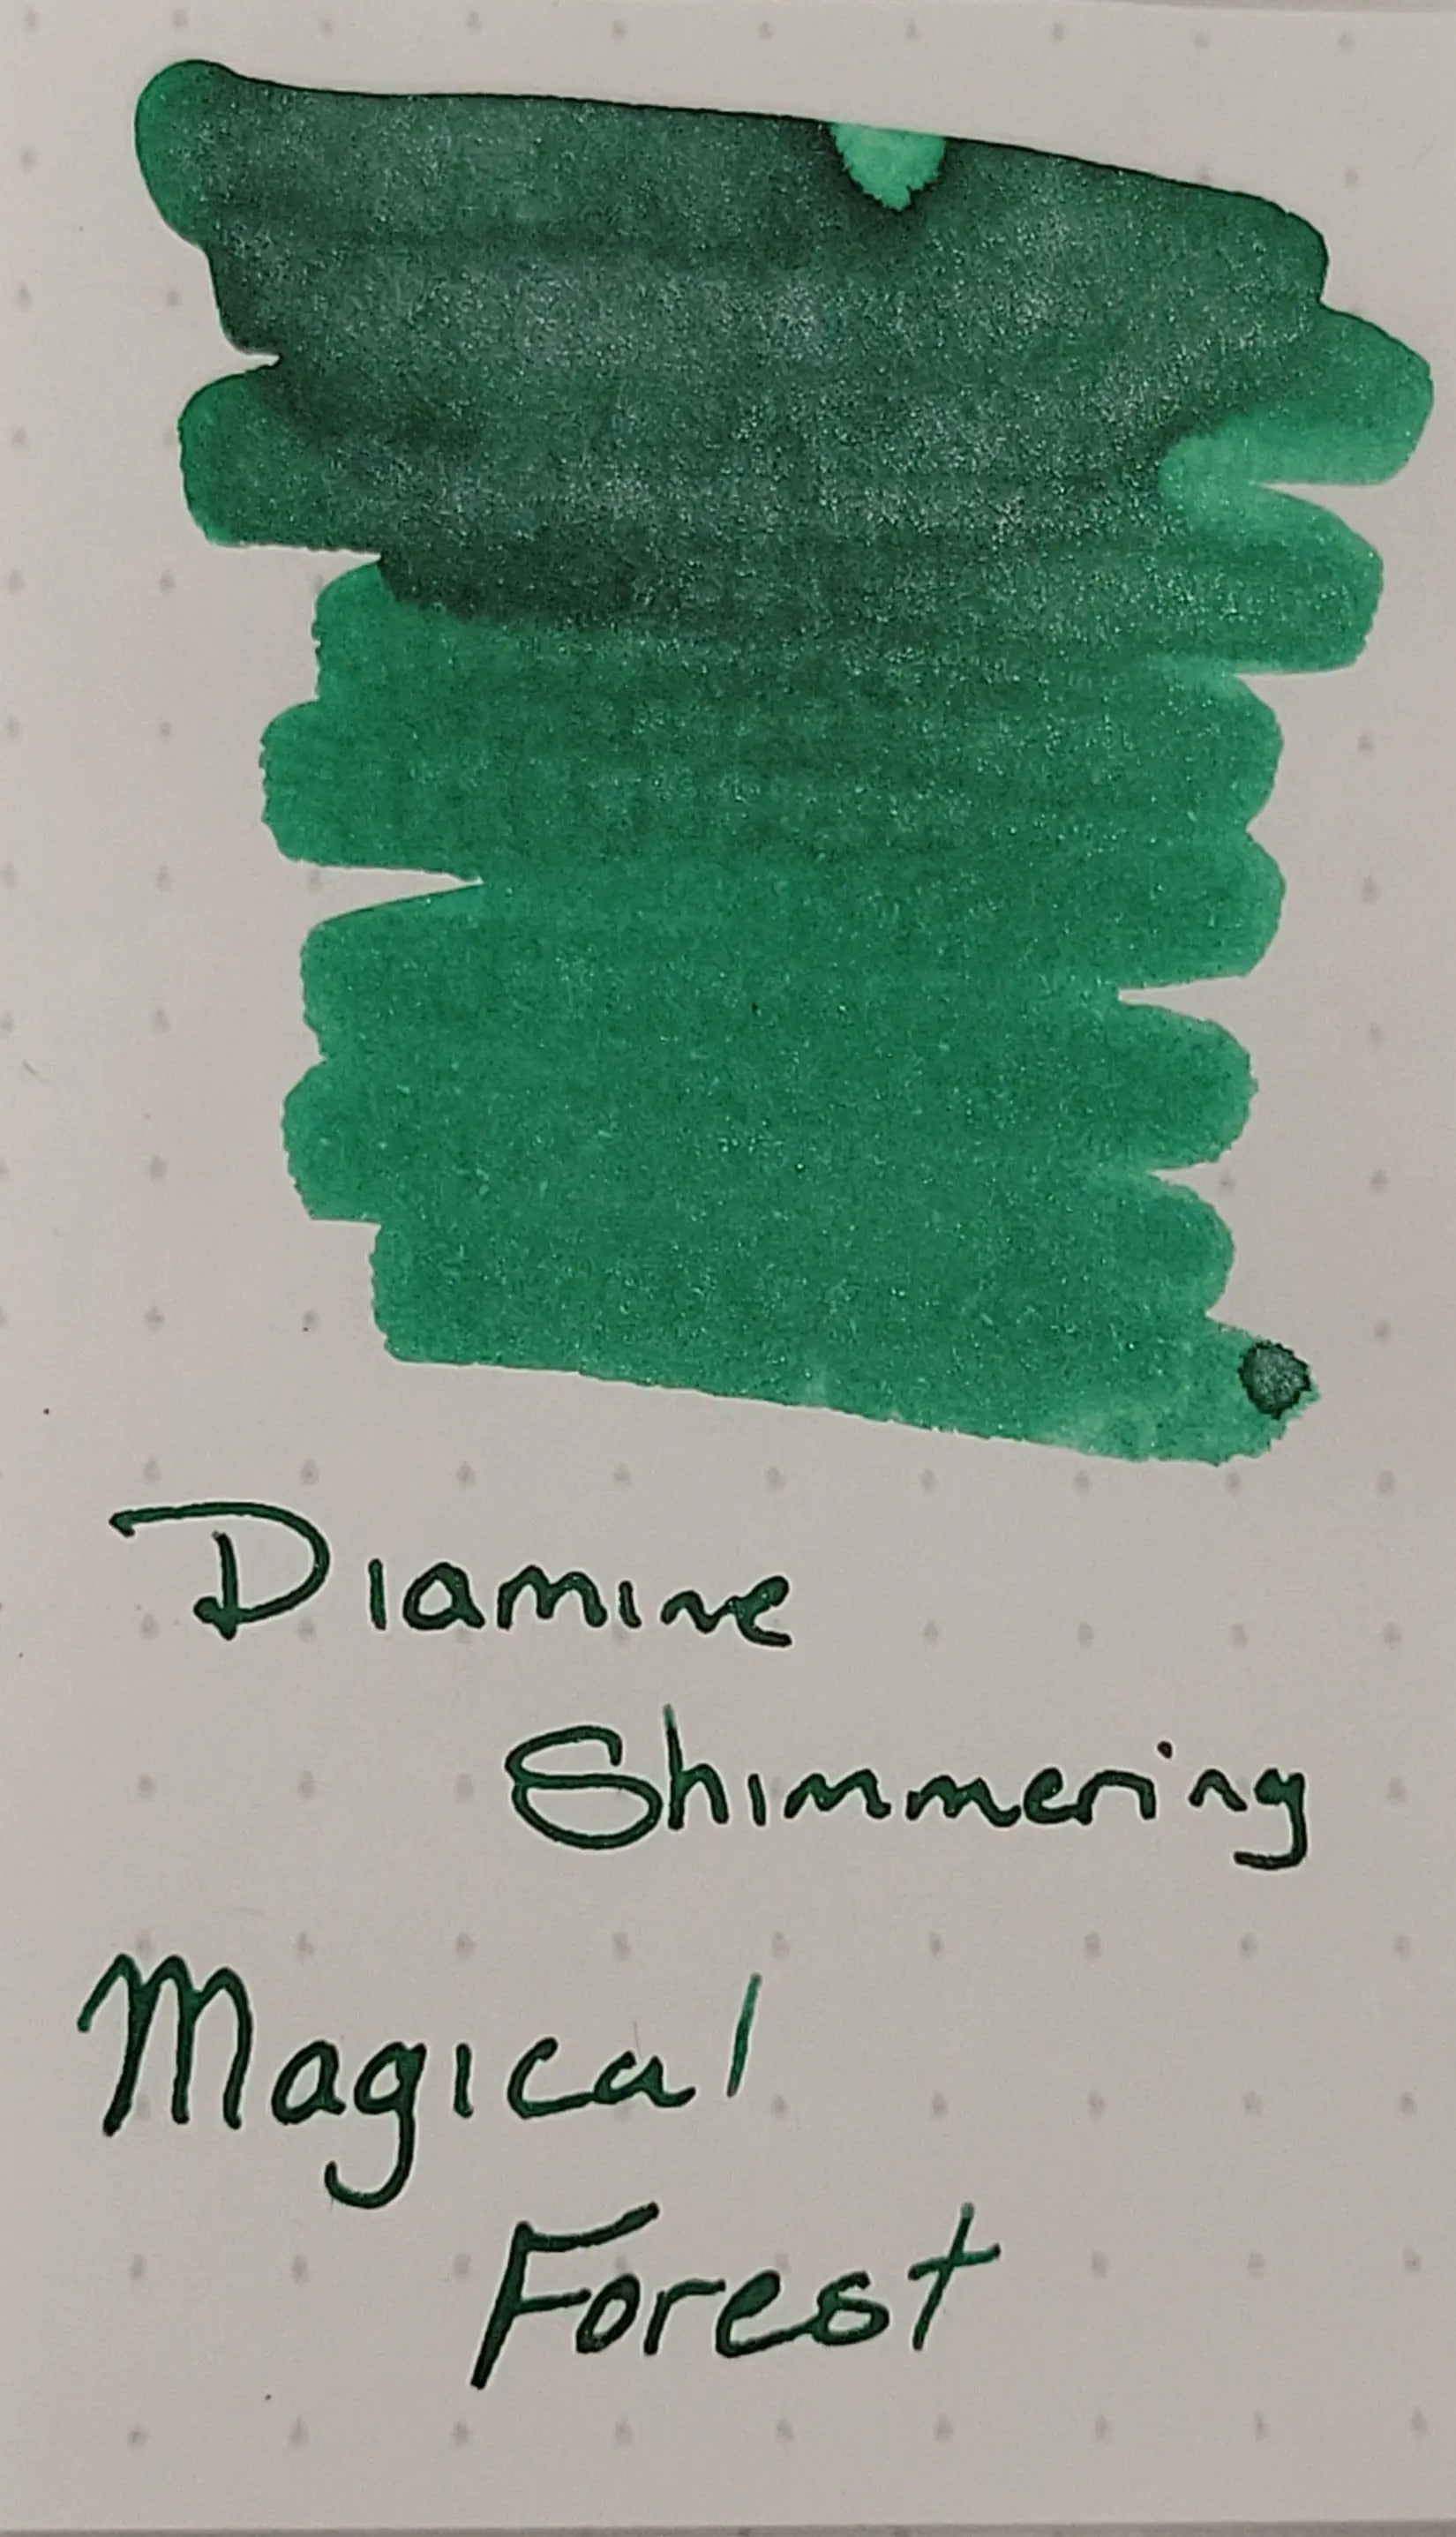 Diamine
Shimmering
Magical
Forest